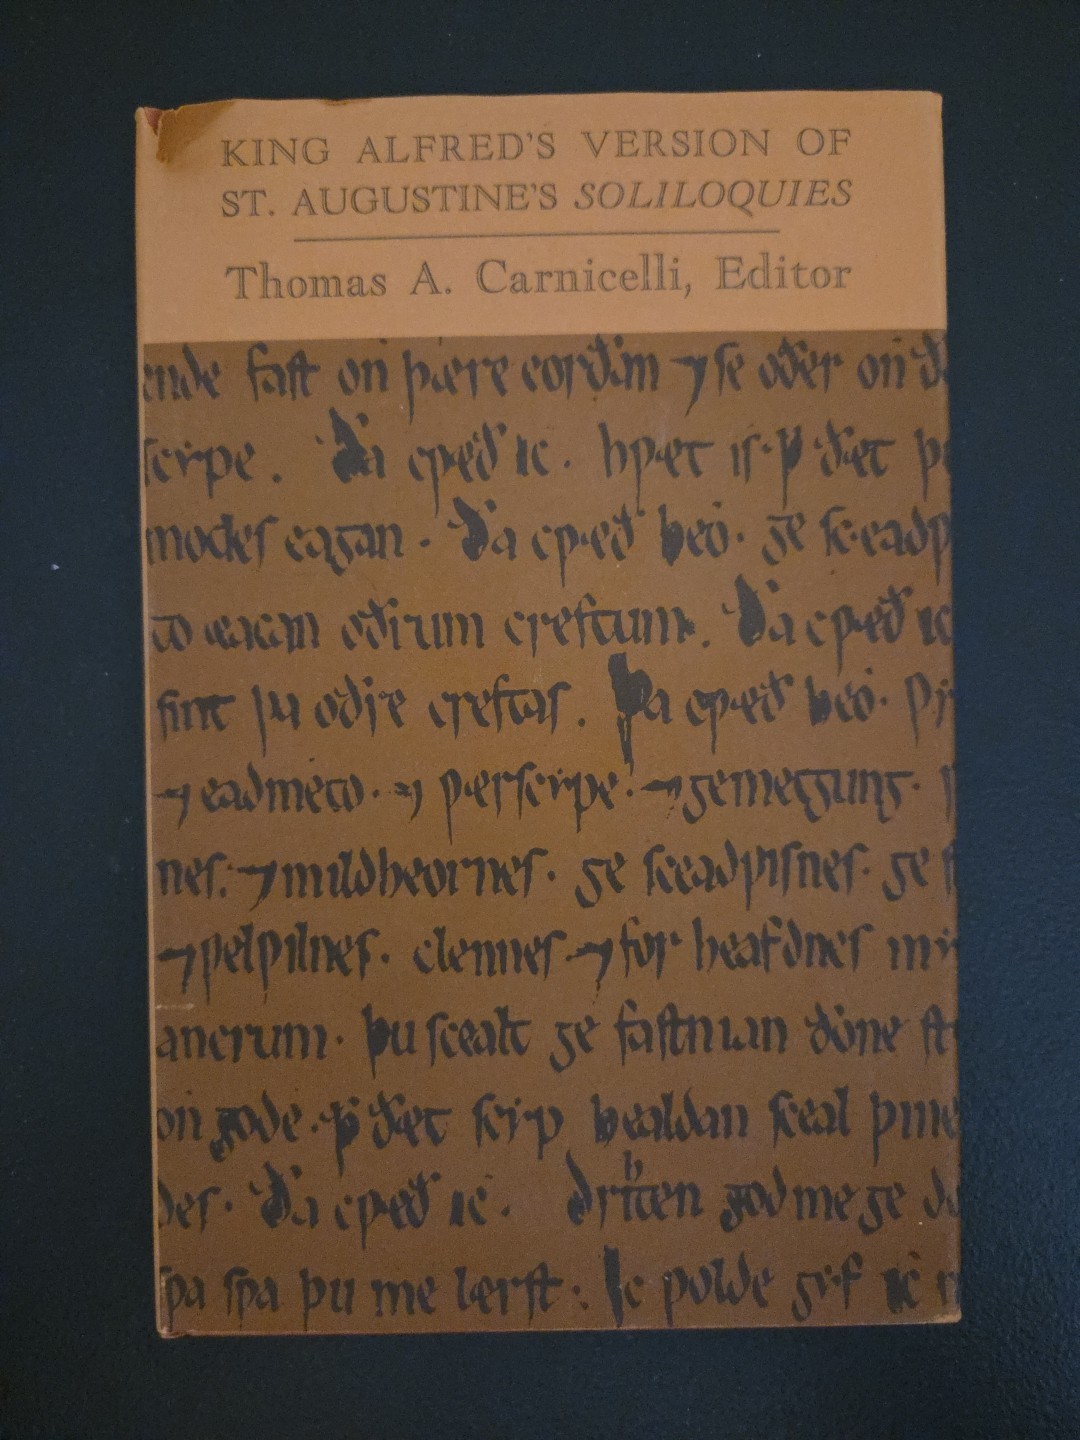 KING ALFRED'S VERSION OF
ST. AUGUSTINE'S SOLILOQUIES
Thomas A. Carnicelli, Editor
ende fast on þære eorðan ⁊ se oðer on
scype. Ða cƿæð ic. hƿæt is ꝥ ðæt
modes eagan. Ða cƿæð heo. ge sceadƿ
to eacan oðrum creftum. Ða cƿæð ic
sint þa oðre creftas. Þa cƿæð heo.
⁊ eadmeto. ⁊ ƿærscype. ⁊ gemetgung.
nes. ⁊ mildheortnes. ge sceadƿisnes. ge
⁊ ƿelƿilnes. clennes ⁊ for heafdnes
ancrum. þu scealt ge fastnian ðone
on gode. ꝥ ðæt scyp healdan sceal þine
des. Ða cƿæð ic. Drihten god me ge
sƿa sƿa þu me lærst: Ic ƿolde gyf ic